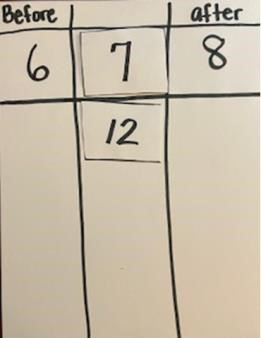 Before after
6 7 8
12